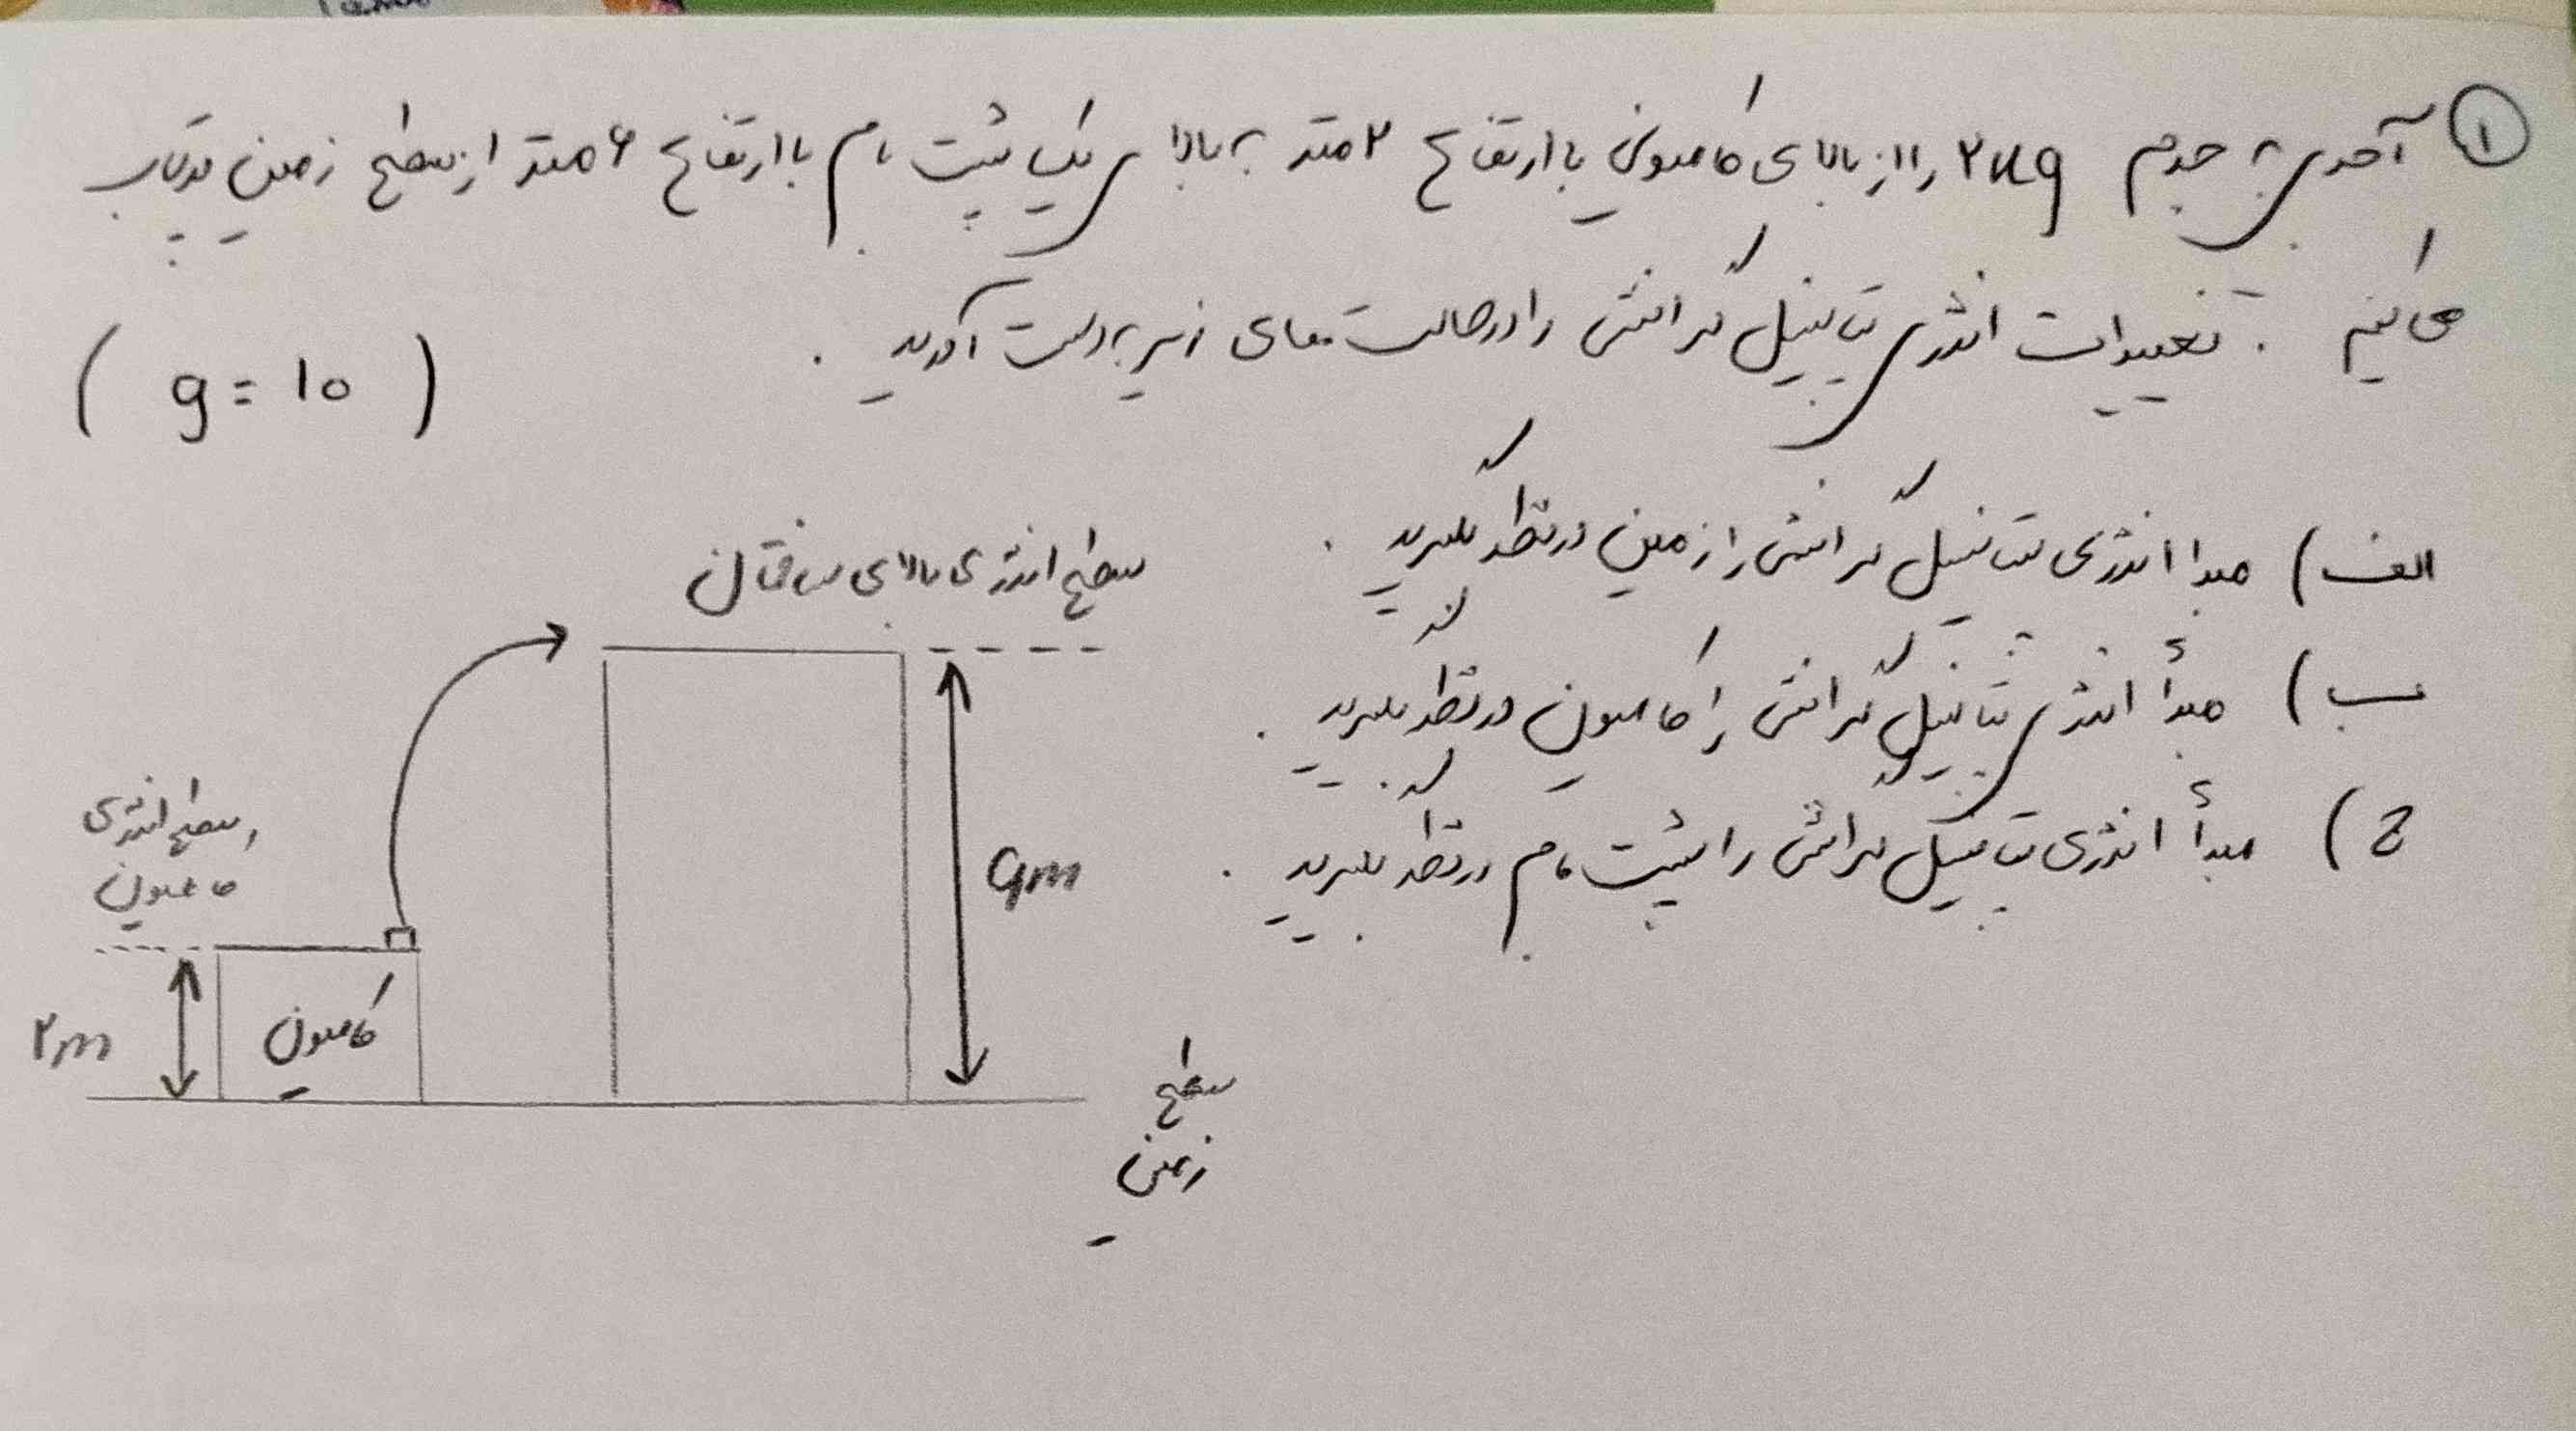 ① آجری به جرم ۲kg را از بالای کامیونی با ارتفاع ۲ متر به بالای یک پشت بام با ارتفاع ۶ متر از سطح زمین پرتاب
می کنیم . تغییرات انرژی پتانسیل گرانشی را در حالت های زیر به دست آورید .
( g = 10 )
الف) مبدا انرژی پتانسیل گرانشی را زمین در نظر بگیرید .
ب) مبدأ انرژی پتانسیل گرانشی را کامیون در نظر بگیرید .
ج) مبدأ انرژی پتانسیل گرانشی را پشت بام در نظر بگیرید .
سطح انرژی بالای ساختمان
۶m
سطح انرژی
کامیون
۲m
کامیون
سطح
زمین